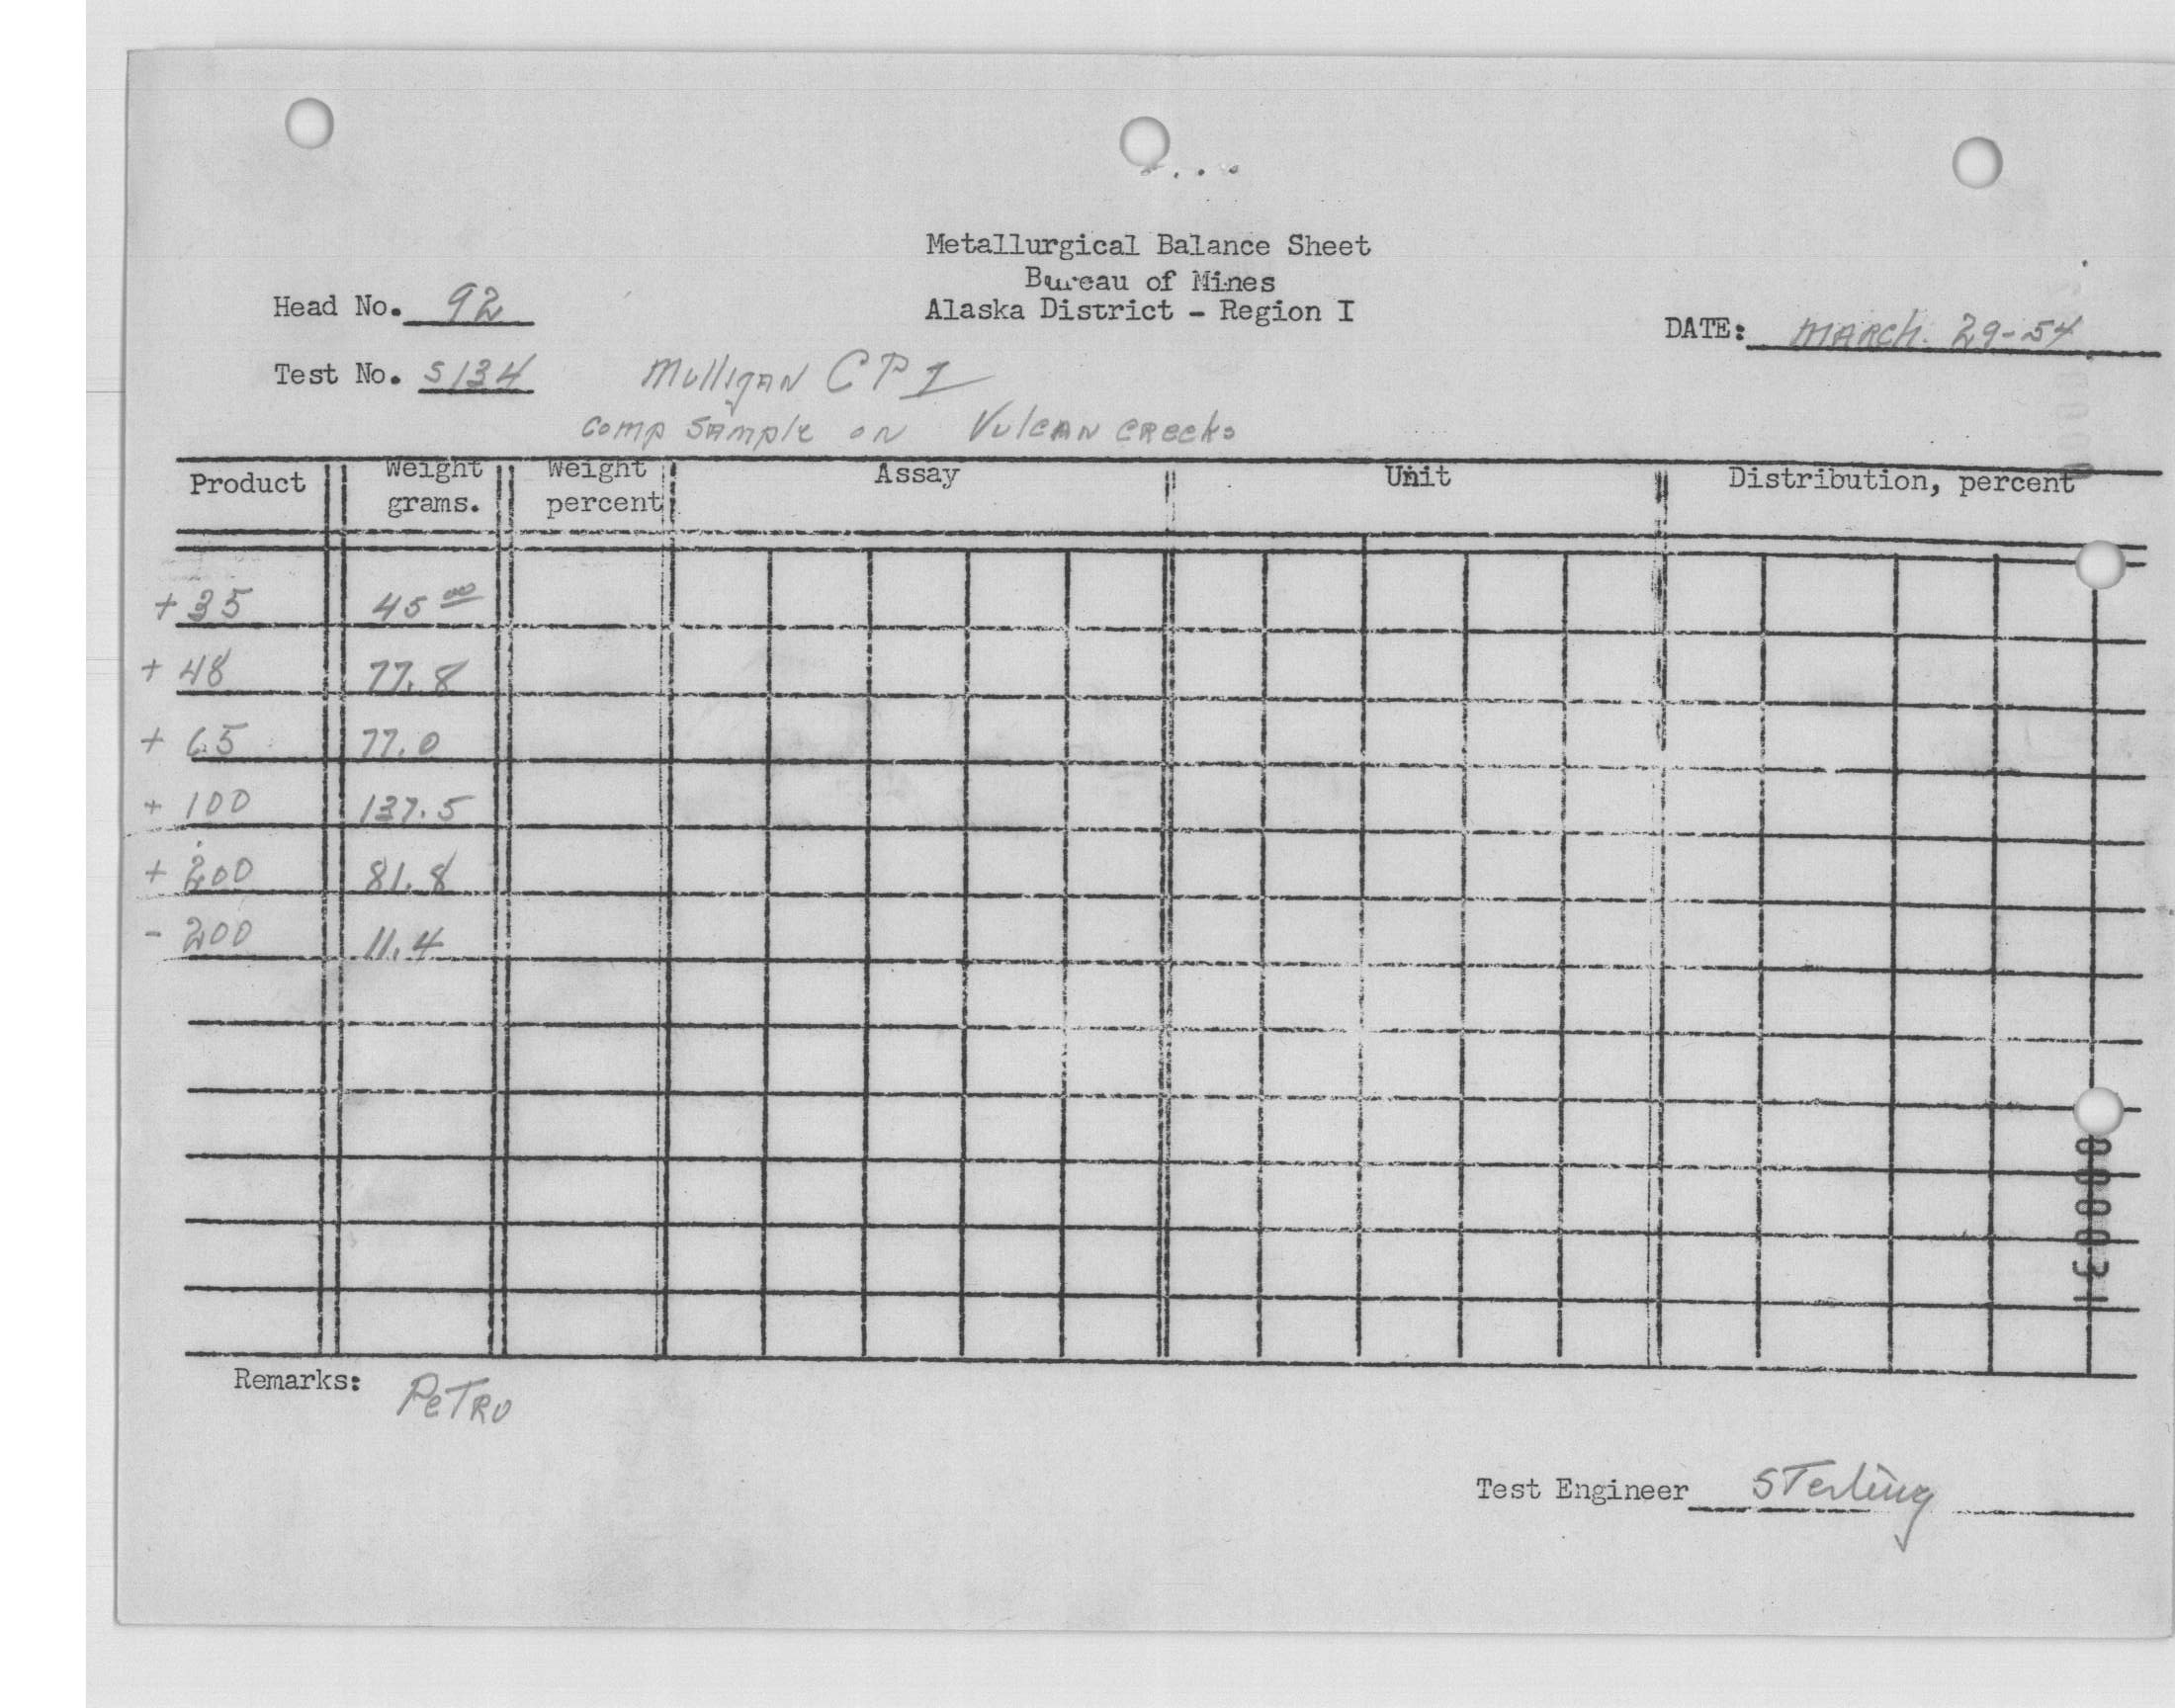 Metallurgical Balance Sheet
Bureau of Mines
Alaska District - Region I
Head No. 92
DATE: MARCH. 29-54
Test No. S134 Mulligan CP I
Comp Sample on Vulcan Creeks
Product Weight grams. Weight percent Assay Unit Distribution, percent
+ 35 45 00
+ 48 77.8
+ 65 77.0
+ 100 137.5
+ 200 81.8
- 200 11.4
000031
Remarks: PeTRO
Test Engineer STerling